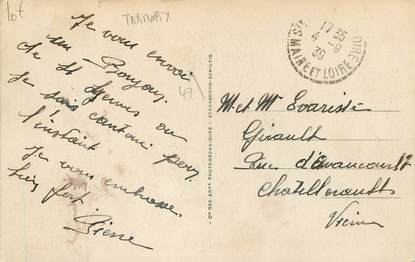 Lot
TRAMWAY
Je vous envoi
un Bonjour.
de St
Je suis cantonné pour
l'instant
Je vous embrasse
bien fort
Pierre
49
Cie DES ARTS PHOTOMÉCANIQUES - STRASBOURG-SCHILTIG
17 35
4 - 9
39
MAINE ET LOIRE
M. et Me Evariste
Girault
Rue d'Avaucourt
Chatellerault
Vienne